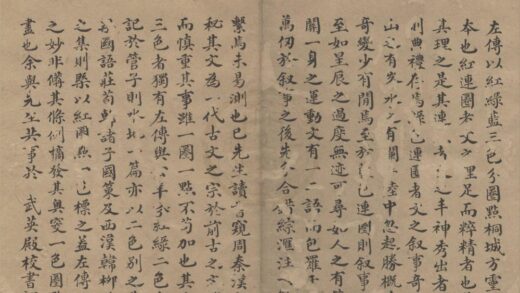 左傳以紅綠藍三色分圈點桐城方靈
本也紅連圈者文之里足而粹精者也
真理之是其連丰神秀出者
連圈者文之叙事奇
山之有中忽起勝概
奇變少有間焉至連圈則叙事
至如星辰之過度無迹可尋如人之有
開一身之運動文有一二語而包羅
萬仞於叙事之後先合綜滙注
繫焉未易測也已先生讀書窺周秦漢
秘其文為一代古文之宗於前古之文
而慎重其事雖一圈一點不苟加也其
三色者獨有左傳與手於紅綠二色
記於管子則一篇亦以二色別之
國語莊荀諸子國策及西漢韓柳
之集則槩以紅點標之蓋左傳
之妙非備其條例擿發其奧突一色圈
盡也余與先生共事於 武英殿校書